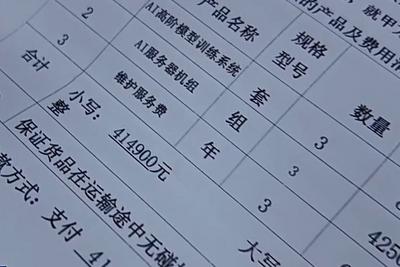 就甲
的产品及费用
产品名称 规格型号 数量
AI高阶模型训练系统 套 3
2 AI服务器机组 组 3
3 维护服务费 年 3
合计 小写：414900元 425
整 大写
保证货品在运输途中无碰
方式：支付 41